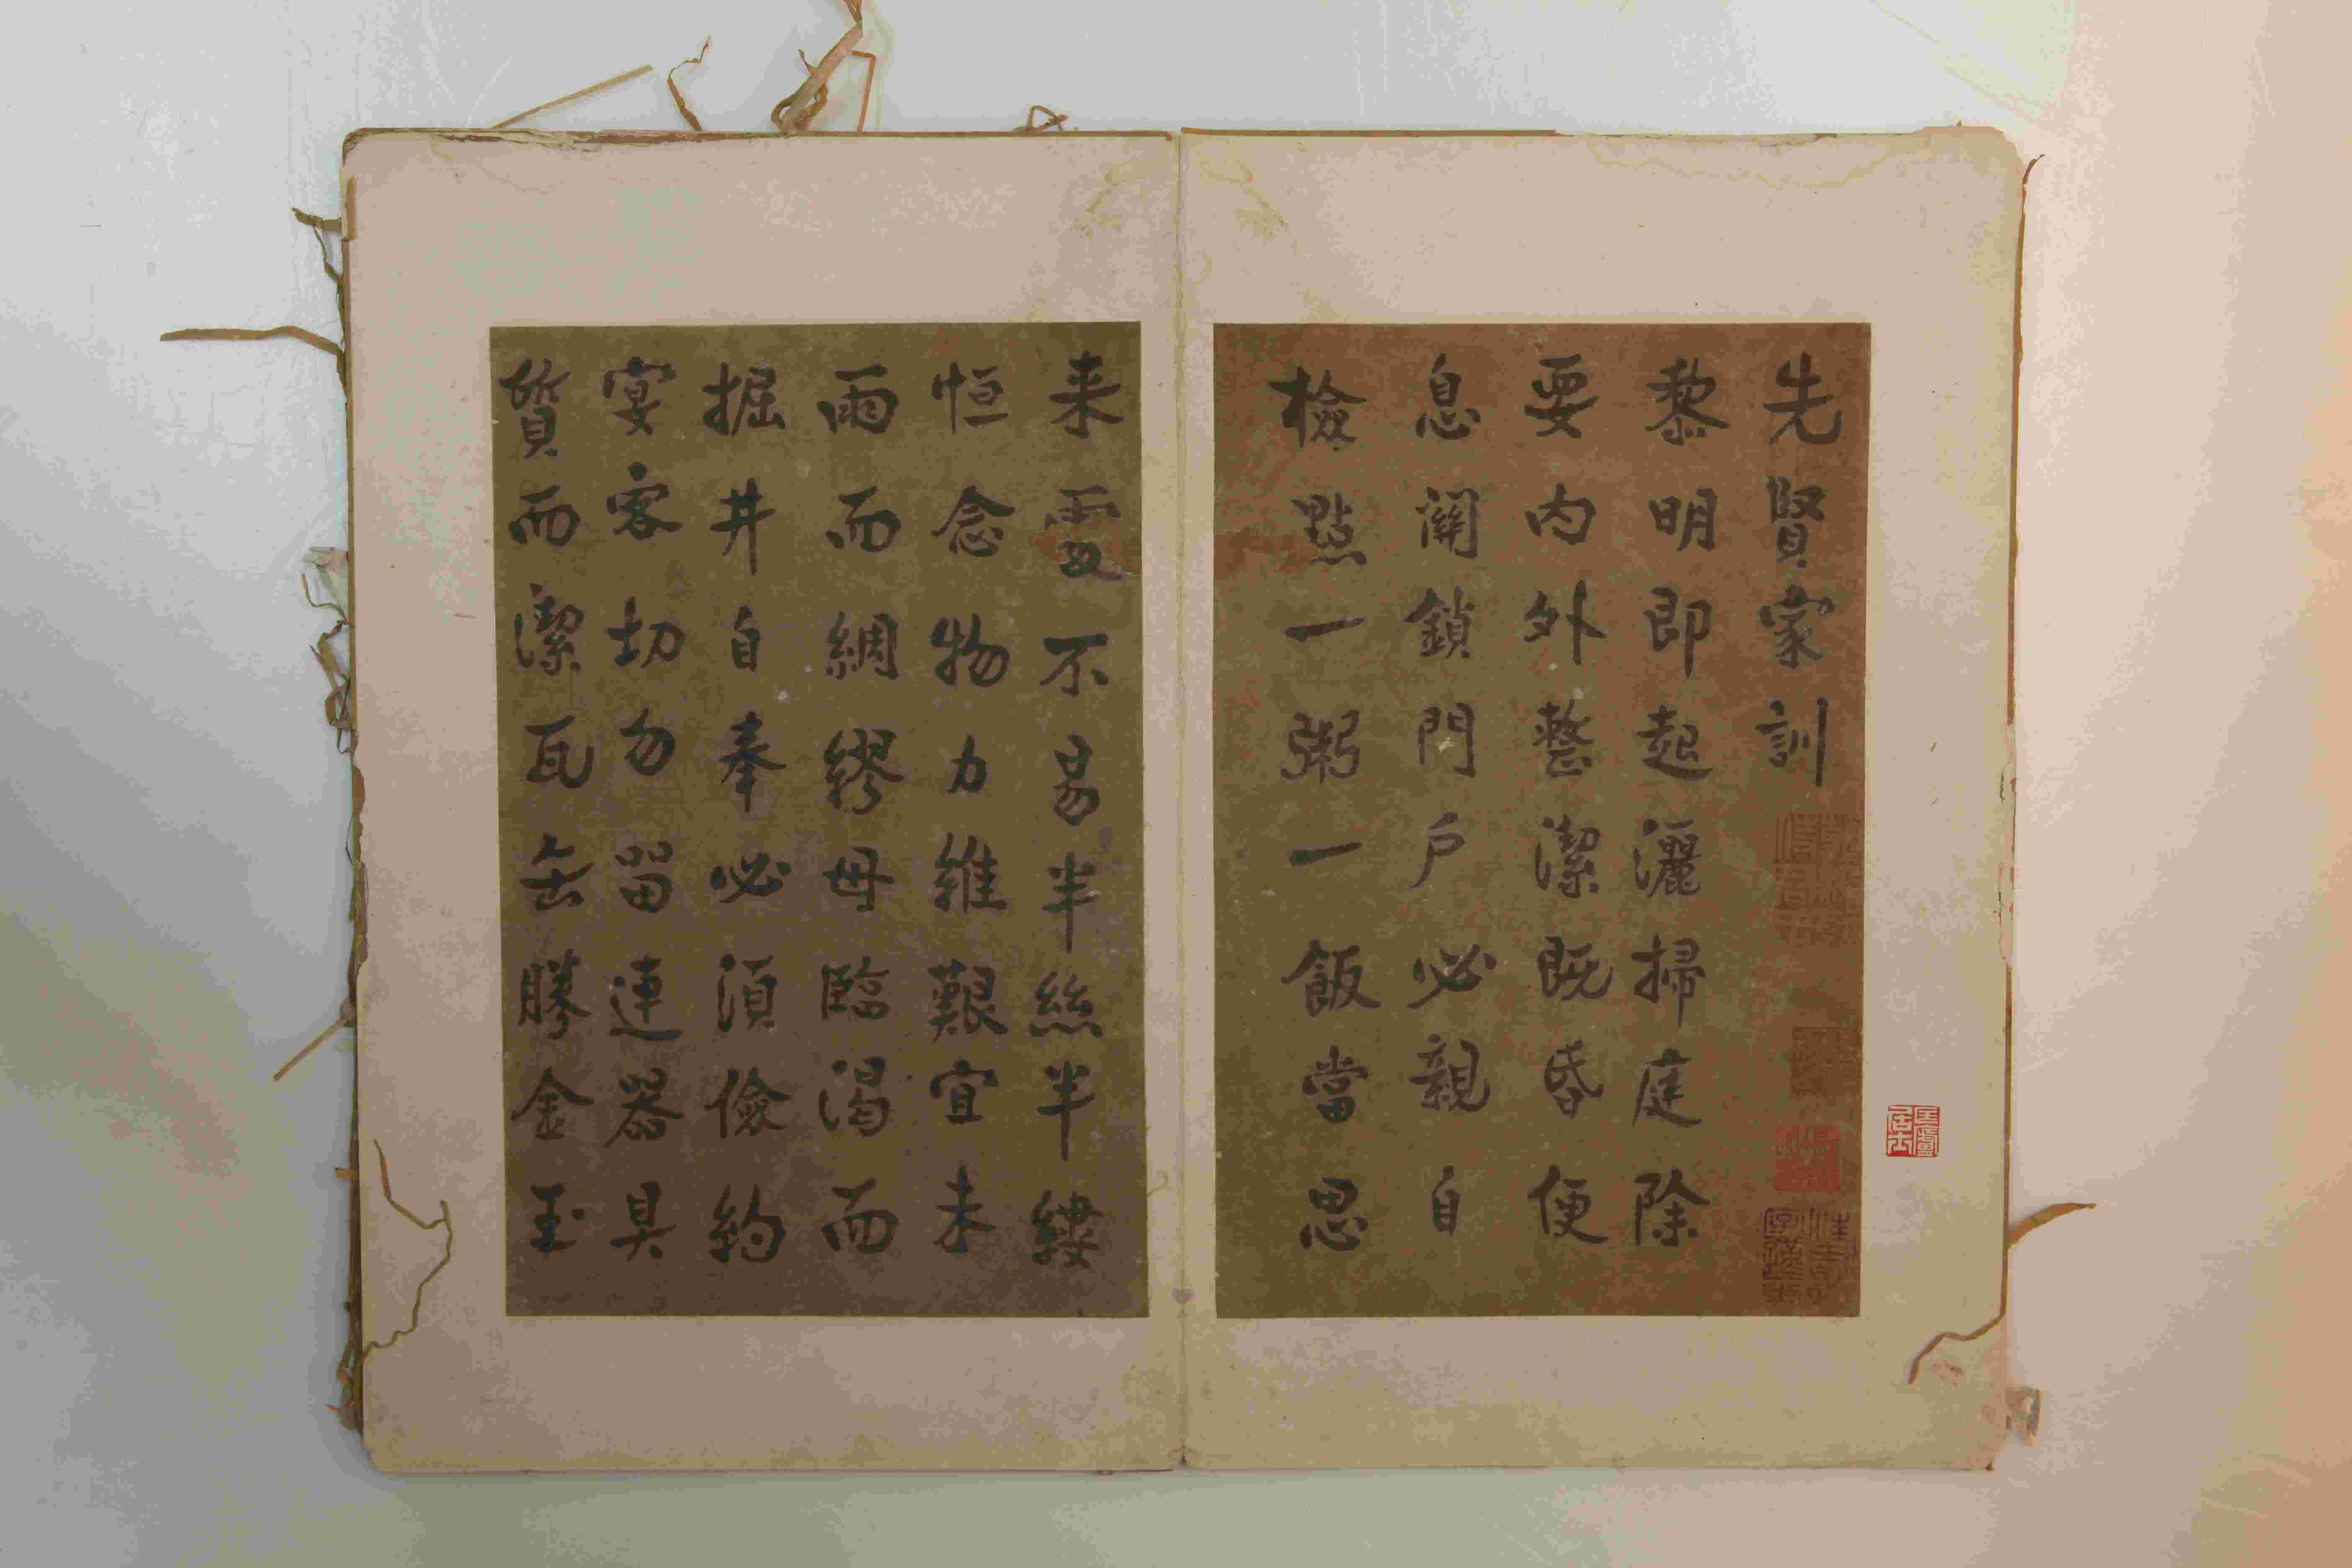 先賢家訓
黎明即起灑掃庭除
要内外整潔既昏便
息關鎖門戶必親自
檢點一粥一飯當思
来處不易半絲半縷
恒念物力維艱宜未
雨而綢繆毋臨渴而
掘井自奉必須儉約
宴客切勿留連器具
質而潔瓦缶勝金玉